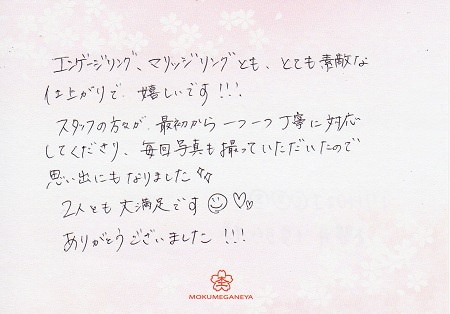 エンゲージリング、マリッジリングとも、とても素敵な
仕上がりで、嬉しいです!!!
スタッフの方々が、最初から一つ一つ丁寧に対応
してくださり、毎回写真も撮っていただいたので
思い出にもなりました☆☆
2人とも大満足です☺♡♡
ありがとうございました!!!
MOKUMEGANEYA